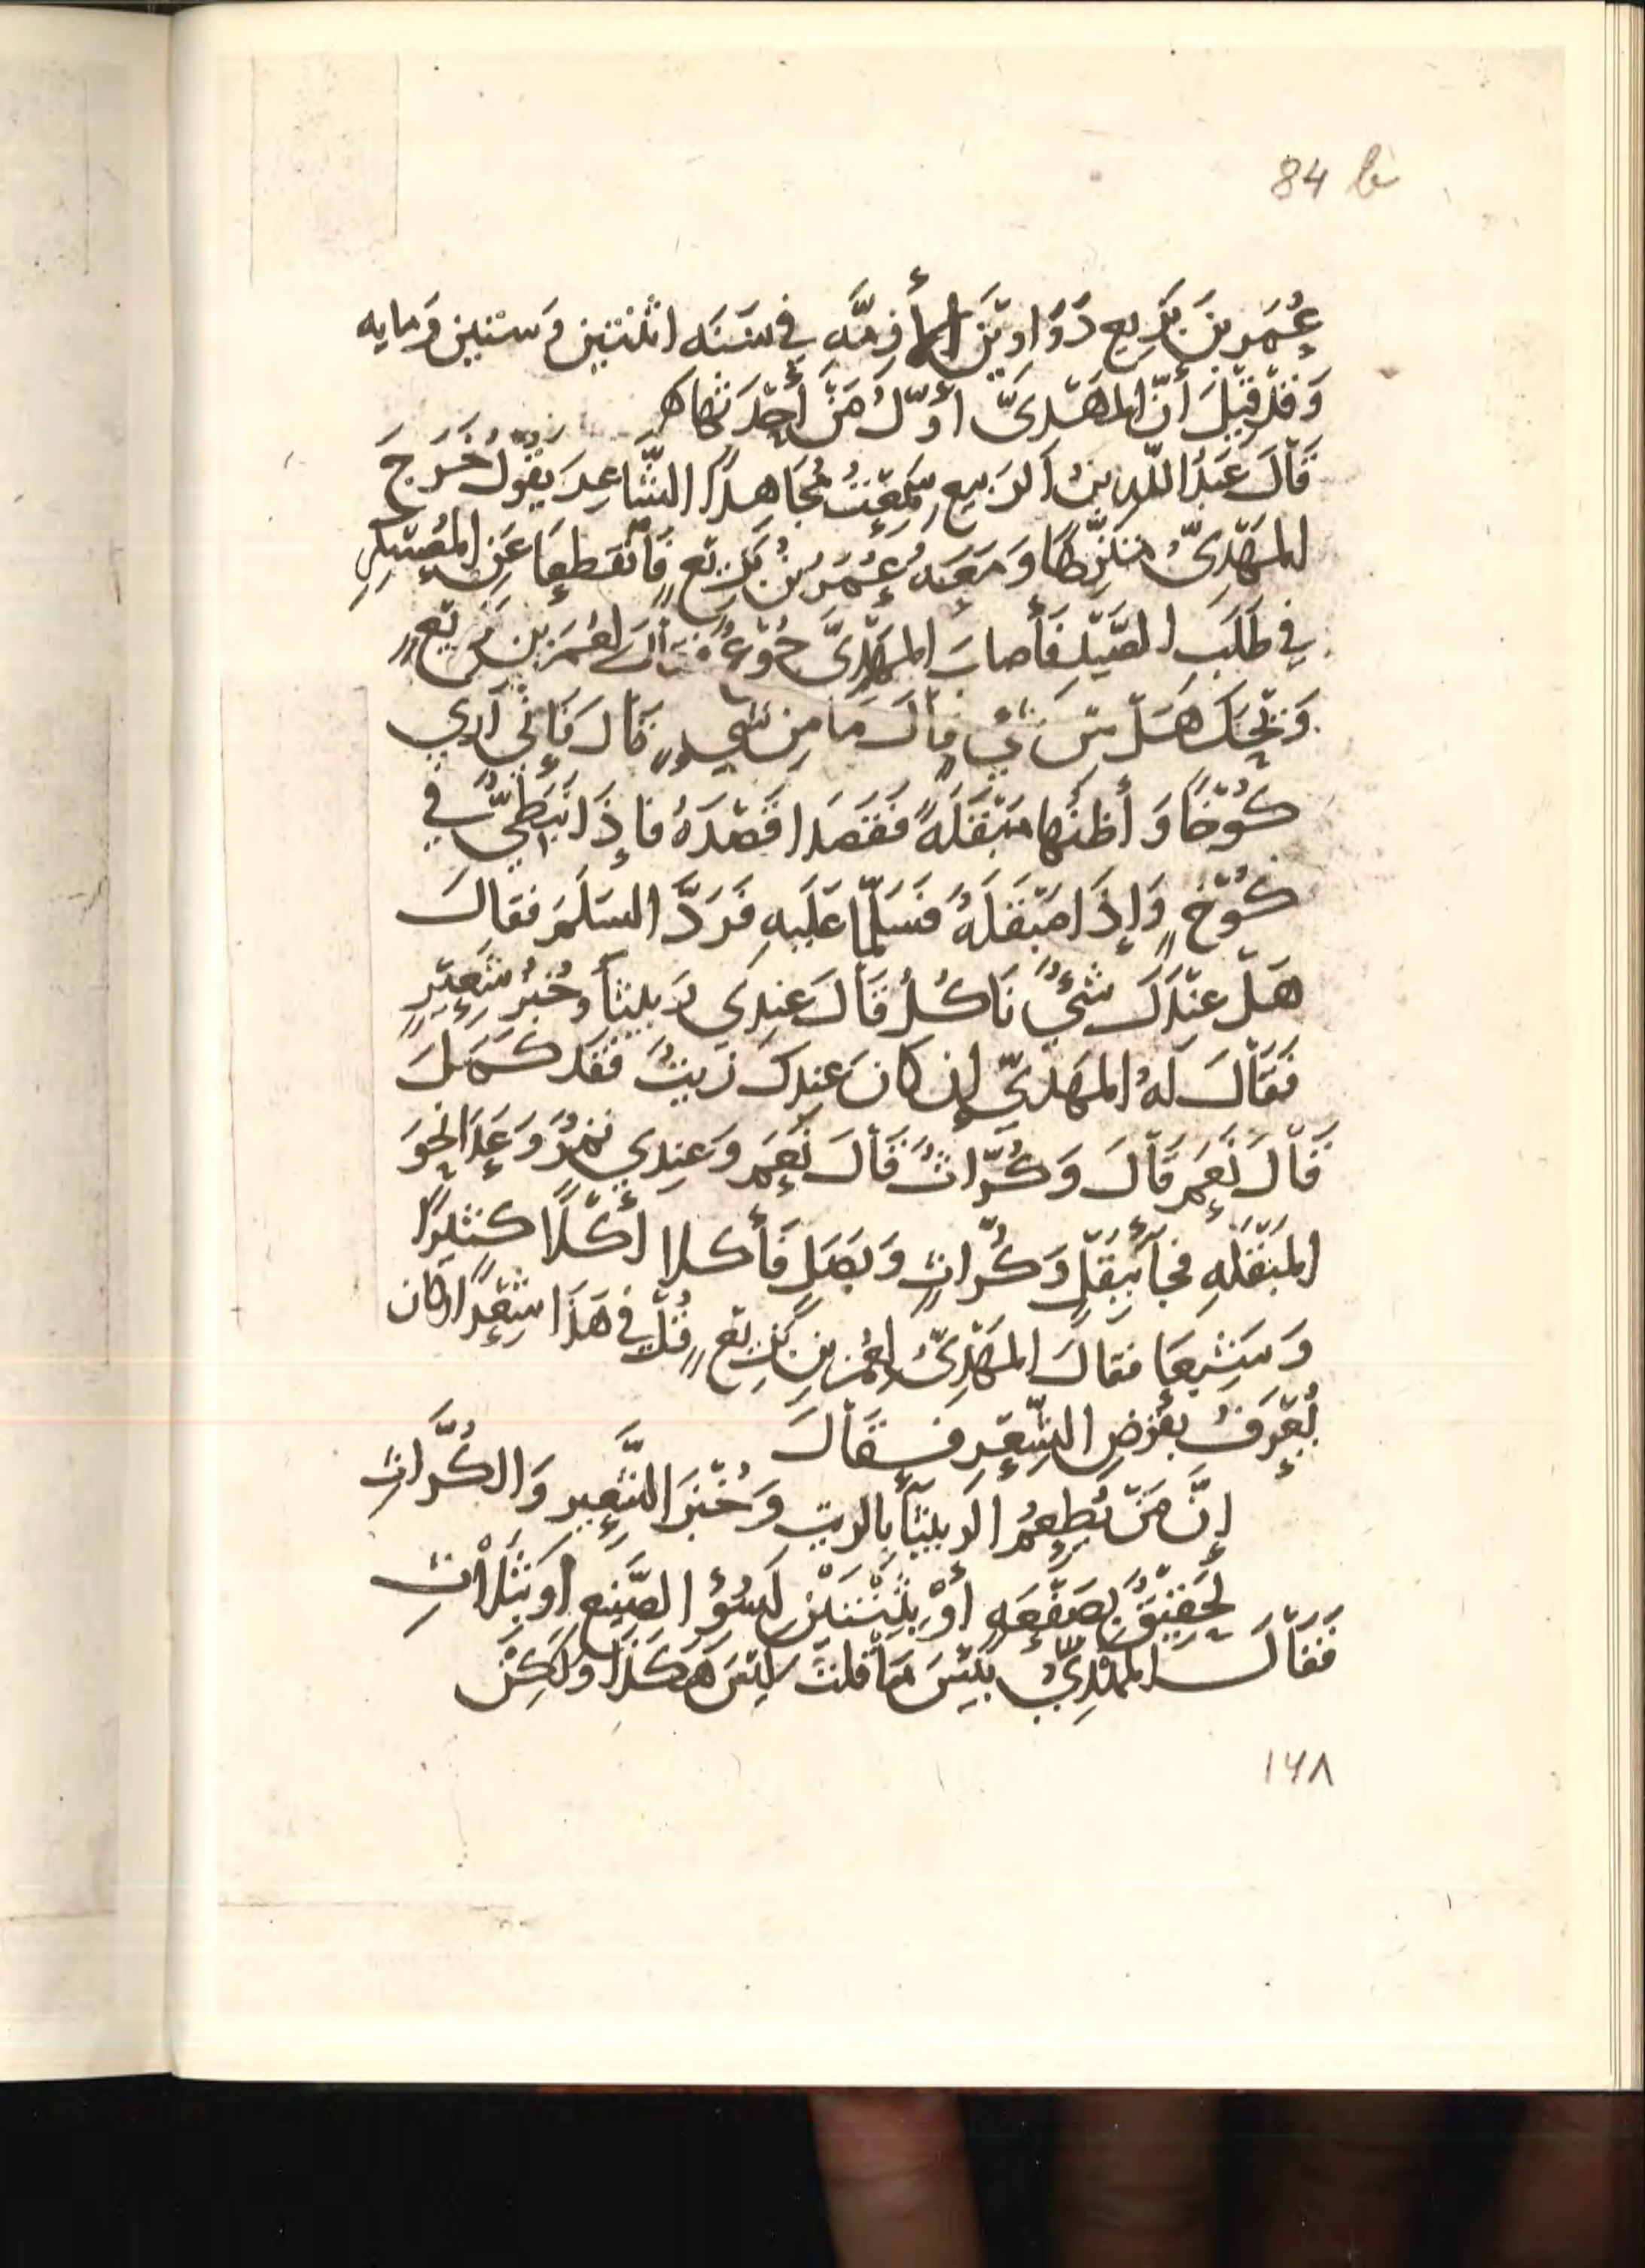 84 b
عُمَر بنَ بَزِيع دَوَاوِينَ الأَزِمَّه في سَنَه اثنتين وَستين وَمايه
وَقَدْ قِيْلَ أنّ المهَدىَّ أوّلُ مَنْ أحْدَثها ه
قَالَ عَبْدُ اللّه بنُ الرَبيع سَمِعْتُ مُجَاهِداً الشَّاعِرَ يَقُولُ خَرَجَ
المَهْدِىُّ متنَزِّهًا وَمَعَهُ عُمَرُ بنُ بَزِيْع فَانْقَطعَا عَنِ المُعَسْكَرِ
في طَلَبِ الصَّيْدِ فَأصابَ المَهْدِىَّ جُوْعٌ فقالَ لعُمَرَ بنِ بَزِيْع
وَيْحَكَ هَلْ مِنْ شَئٍ قالَ مَا مِن شَيءٍ قَالَ فَإنِّي أرَي
كُوْخًا وَأظنُها مَبْقَلَةً فَقَصَدَا قَصْدَهُ فإذَا نَبَطِيٌّ في
كُوْخٍ وَإذَا مَبْقَلَهٌ فَسَلّمَا عَلَيهِ فَرَدَّ السَلَمَ فقالَ
هَلْ عنْدَكَ شَئٌ نَاكُلُ قَالَ عِندِي رَبيثَا وخُبزُ شَعِيْرٍ
فَقَالَ لهُ المهَديّ إن كانَ عِندكَ زَيتٌ فقَد كَمَلَ
قَالَ نَعَم قَالَ وَكُرّاثٌ قَالَ نَعَم وَعِندِي تَمْرٌ وَعَدَا نحوَ
المَبْقَلَهِ فجآءَ ببَقْلٍ وَكُرّاثٍ وَبَصَلٍ فَأكلا أكْلًا كَثيرًا
وَشَبِعَا فقالَ المَهْدِىُّ لعُمر بنِ بَزِيْع قُلْ في هَذَا شِعْرًا وكان
يُعْرَفُ بقَرْضِ الشِّعْرِ فقَالَ
إنَّ مَنْ يُطعِمُ الرَبيثَآ بالزيتِ وَخُبْزَ الشَّعِيرِ وَالكُرَّاثِ
لحَقِيْقٌ بصَفْعَهٍ أوْ بثِنْتَيْنِ لِسُوْءِ الصَّنِيع أو بثَلَاثِ
فَقَالَ المهْدِيُّ بَئِسَ مَا قلتَ لَيْسَ هَكَذَا وَلَكِنْ
١٦٨